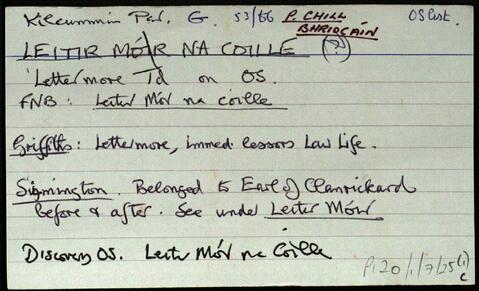 Kilcummin Par. G. 53/66 P. CHILL BHRIOCÁIN OS List.
LEITIR MÓIR NA COILLE (?)
Lettermore Td on OS.
FNB: Leitir Mór na coille
Griffiths: Lettermore, immed. lessors Law Life.
Simington. Belonged to Earl of Clanrickard
before & after. See under Leitir Móir
Discovery OS. Leitir Mór na Coille
P120/1/7/25(1)
c